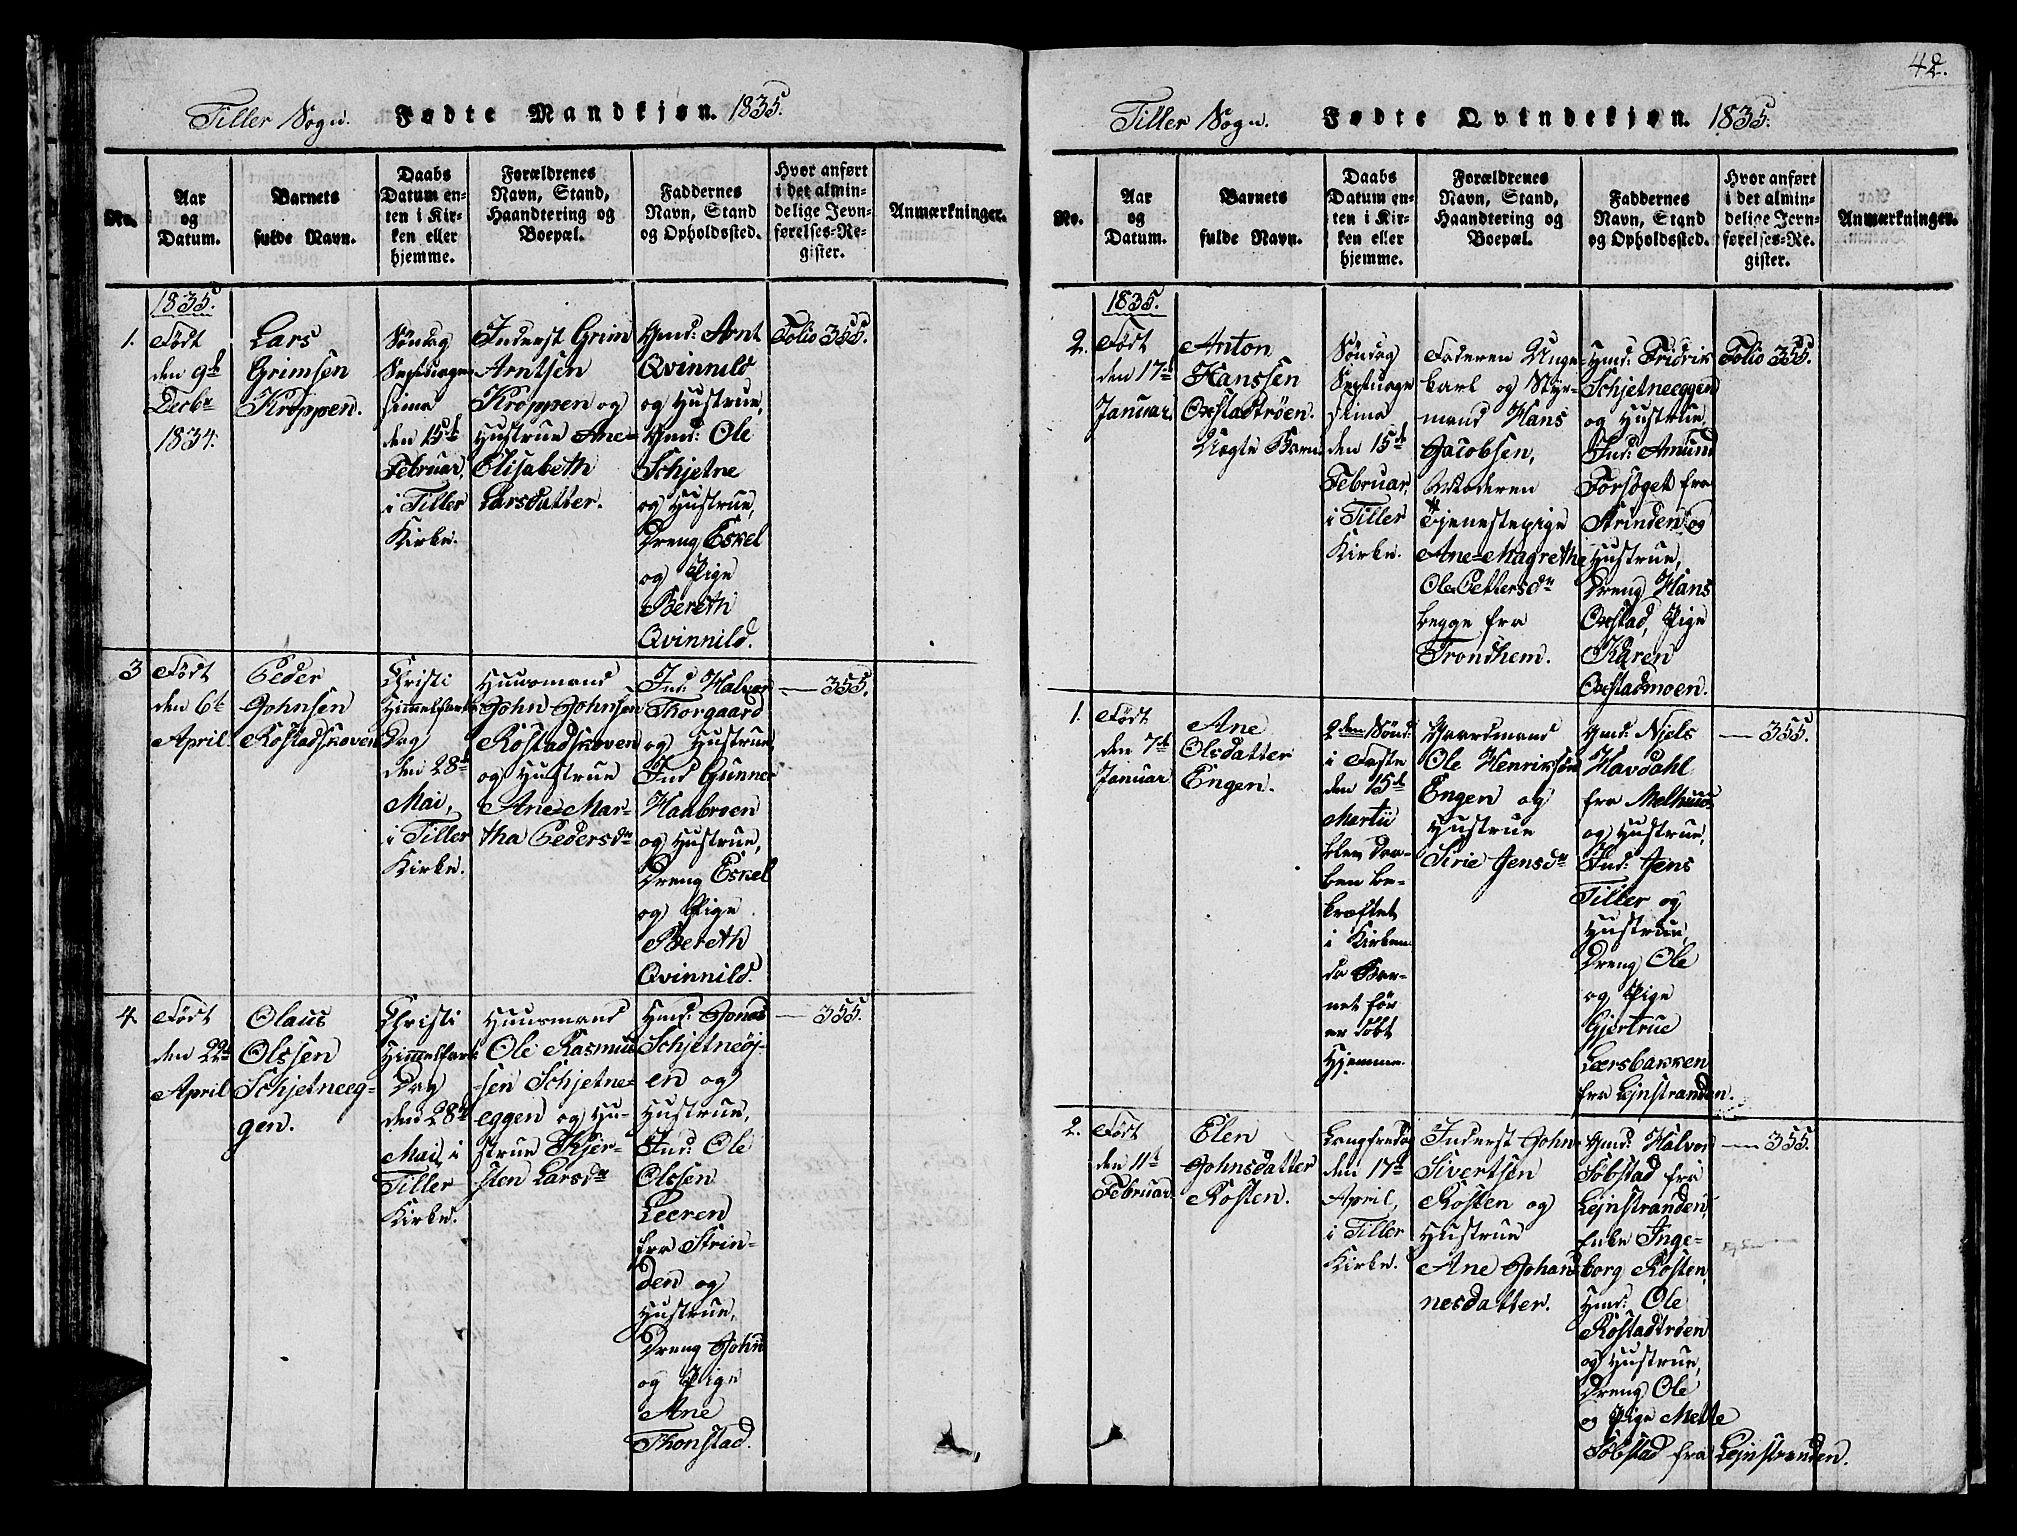 Tiller Sogn. Fødte Mandkjøn. 1835.
No.
Aar
og
Datum.
Barnets
fulde Navn.
Daabs
Datum en-
ten i Kir-
ken eller
hjemme.
Forældrenes
Navn, Stand,
Haandtering og
Boepæl.
Faddernes
Navn, Stand
og Opholdssted.
Hvor anført
i det almin-
delige Jevn-
førelses-Re-
gister.
Anmærkninger.
1835.
1.
Født
den 9de
Decbr
1834.
Lars
Grimsen
Krøppen.
Søndag
Septuage
sima
den 15de
Februar,
i Tiller
Kirke.
Inderst Grim
Arntsen
Krøppen og
Hustrue Ane
Elisabeth
Larsdatter.
Gmd: Arnt
Qvinnild
og Hustrue,
Gmd: Ole
Schjetne
og Hustrue,
Dreng Eskel
og Pige
Bereth
Qvinnild.
Folio 355.
3
Født
den 6te
April.
Peder
Johnsen
Rostadskoven
Christi
Himmelfarts
Dag
den 28de
Mai,
i Tiller
Kirke.
Huusmand
John Johnsen
Rostadskoven
og Hustrue
Ane Mar-
tha Pedersdr
Ind: Halvor
Thorgaard
og Hustrue,
Ind Gunner
Haabroen
og Hustrue,
Dreng Eskel
og Pige
Bereth
Qvinnild.
— 355.
4.
Født
den 22de
April
Olaus
Olssen
Schjetneeg-
gen.
Christi
Himmelfarts
Dag
den 28de
Mai, i
Tiller
Kirke.
Huusmand
Ole Rasmus-
sen Schjetne-
eggen og Hu-
strue Kjer-
sten Larsdr
Hmd: Jonas
Schjetneøj-
en og
Hustrue,
Ind: Ole
Olssen
Leeren
fra Strin-
den og
Hustrue,
Dreng John
og Pige
Ane
Thonstad.
— 355.
42.
Tiller Sogn. Fødte Qvindekjøn. 1835.
No.
Aar
og
Datum.
Barnets
fulde Navn.
Daabs
Datum en-
ten i Kir-
ken eller
hjemme.
Forældrenes
Navn, Stand,
Haandtering og
Boepæl.
Faddernes
Navn, Stand
og Opholdssted.
Hvor anført
i det almin-
delige Jevn-
førelses-Re-
gister.
Anmærkninger.
1835.
2.
Født
den 17de
Januar.
Anton
Hanssen
Oxstadtrøen.
Uægte Barn.
Søndag
Septuage
sima
den 15de
Februar,
i Tiller
Kirke.
Faderen Unge-
karl og Styr-
mand Hans
Jacobsen,
Moderen
Tjenestepige
Ane Magrethe
Ole Pettersdr
begge fra
Trondhem.
Hmd: Fridrik
Schjetneeggen
og Hustrue,
Ind: Amund
Forsøget fra
Strinden og
Hustrue,
Dreng Hans
Oxstad, Pige
Karen
Oxstadmoen.
Folio 355.
1.
Født
den 7de
Januar
Ane
Olsdatter
Engen.
2den Sønd:
i Faste
den 15de
Martii
blev Daa-
ben be-
kræftet
i Kirken
da Bar-
net før
er døbt
Hjemme.
Gaardmand
Ole Henriksøn
Engen og
Hustrue
Sirie Jensdr
Gmd: Niels
Havdahl
fra Melhuus
og Hustrue,
Ind: Jens
Tiller og
Hustrue,
Dreng Ole
og Pige
Gjertrue
Lersbakken
fra Lejnstranden.
— 355.
2.
Født
den 11te
Februar.
Elen
Johnsdatter
Rosten.
Langfredag
den 17de
April,
i Tiller
Kirke.
Inderst John
Sivertsen
Rosten og
Hustrue
Ane Johan-
nesdatter.
Gmd: Halvor
Søbstad fra
Lejnstranden,
Enke Inge-
borg Rosten,
Hmd: Ole
Rostadtrøen
og Hustrue,
Dreng Ole
og Pige Mette
Søbstad fra Lejnstranden.
— 355.